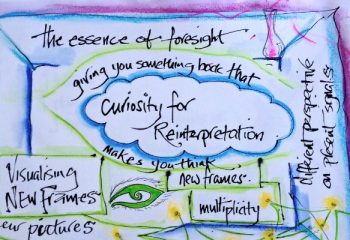 The essence of foresight
giving you something back that
Curiosity for
Reinterpretation
makes you think
different perspective
on present signals
Visualising
New Frames
new frames
multiplicity
pictures